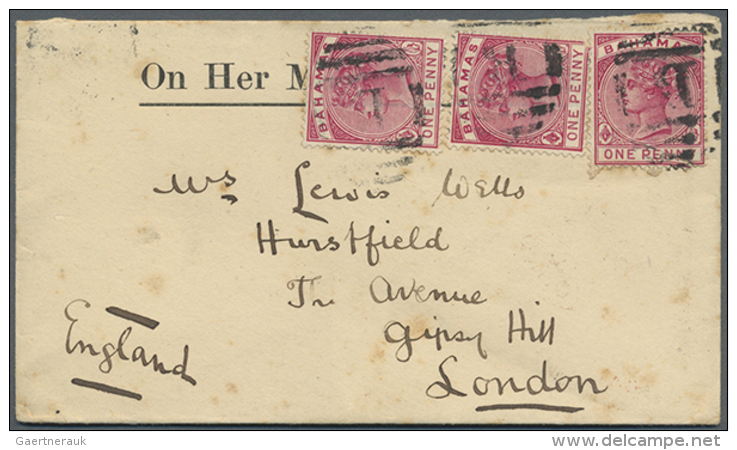 On Her M
BAHAMAS
ONE PENNY
BAHAMAS
ONE PENNY
BAHAMAS
ONE PENNY
Mrs Lewis Wells
Hurstfield
The Avenue
Gipsy Hill
London
England
Gaertnerauk
www.delcampe.net